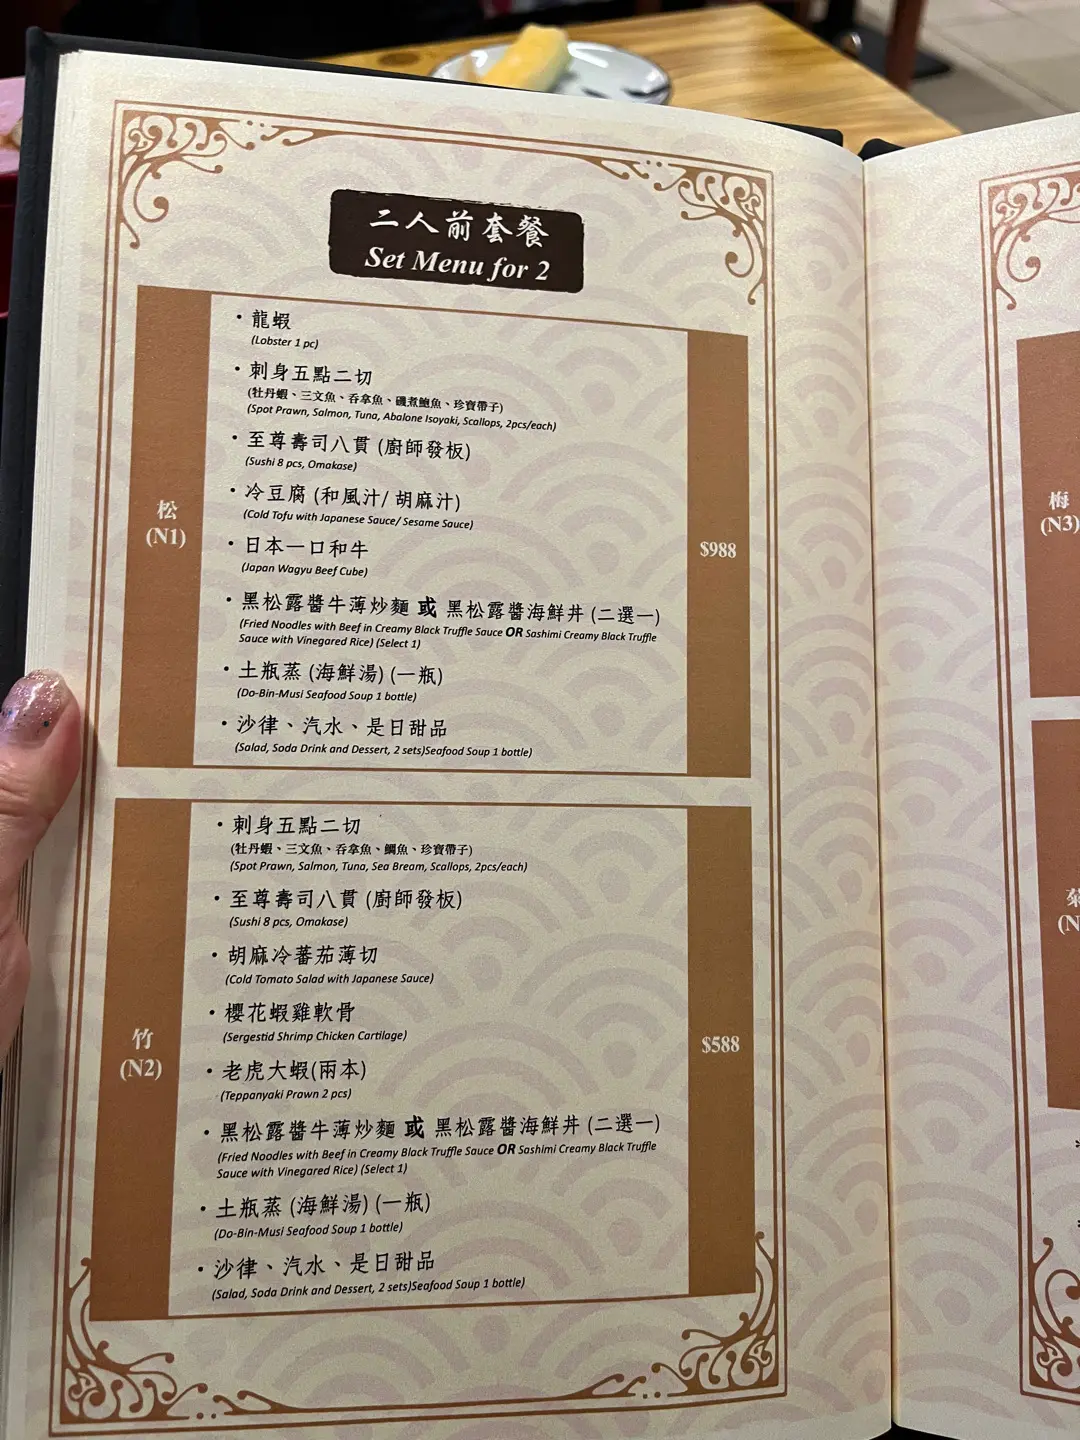 二人前套餐
Set Menu for 2
松
(N1)
• 龍蝦
(Lobster 1 pc)
• 刺身五點二切
(牡丹蝦、三文魚、吞拿魚、磯煮鮑魚、珍寶帶子)
(Spot Prawn, Salmon, Tuna, Abalone Isoyaki, Scallops, 2pcs/each)
• 至尊壽司八貫 (廚師發板)
(Sushi 8 pcs, Omakase)
• 冷豆腐 (和風汁/ 胡麻汁)
(Cold Tofu with Japanese Sauce/ Sesame Sauce)
• 日本一口和牛
(Japan Wagyu Beef Cube)
• 黑松露醬牛薄炒麵 或 黑松露醬海鮮丼 (二選一)
(Fried Noodles with Beef in Creamy Black Truffle Sauce OR Sashimi Creamy Black Truffle
Sauce with Vinegared Rice) (Select 1)
• 土瓶蒸 (海鮮湯) (一瓶)
(Do-Bin-Musi Seafood Soup 1 bottle)
• 沙律、汽水、是日甜品
(Salad, Soda Drink and Dessert, 2 sets)Seafood Soup 1 bottle)
$988
竹
(N2)
• 刺身五點二切
(牡丹蝦、三文魚、吞拿魚、鯛魚、珍寶帶子)
(Spot Prawn, Salmon, Tuna, Sea Bream, Scallops, 2pcs/each)
• 至尊壽司八貫 (廚師發板)
(Sushi 8 pcs, Omakase)
• 胡麻冷蕃茄薄切
(Cold Tomato Salad with Japanese Sauce)
• 櫻花蝦雞軟骨
(Sergestid Shrimp Chicken Cartilage)
• 老虎大蝦(兩本)
(Teppanyaki Prawn 2 pcs)
• 黑松露醬牛薄炒麵 或 黑松露醬海鮮丼 (二選一)
(Fried Noodles with Beef in Creamy Black Truffle Sauce OR Sashimi Creamy Black Truffle
Sauce with Vinegared Rice) (Select 1)
• 土瓶蒸 (海鮮湯) (一瓶)
(Do-Bin-Musi Seafood Soup 1 bottle)
• 沙律、汽水、是日甜品
(Salad, Soda Drink and Dessert, 2 sets)Seafood Soup 1 bottle)
$588
梅
(N3)